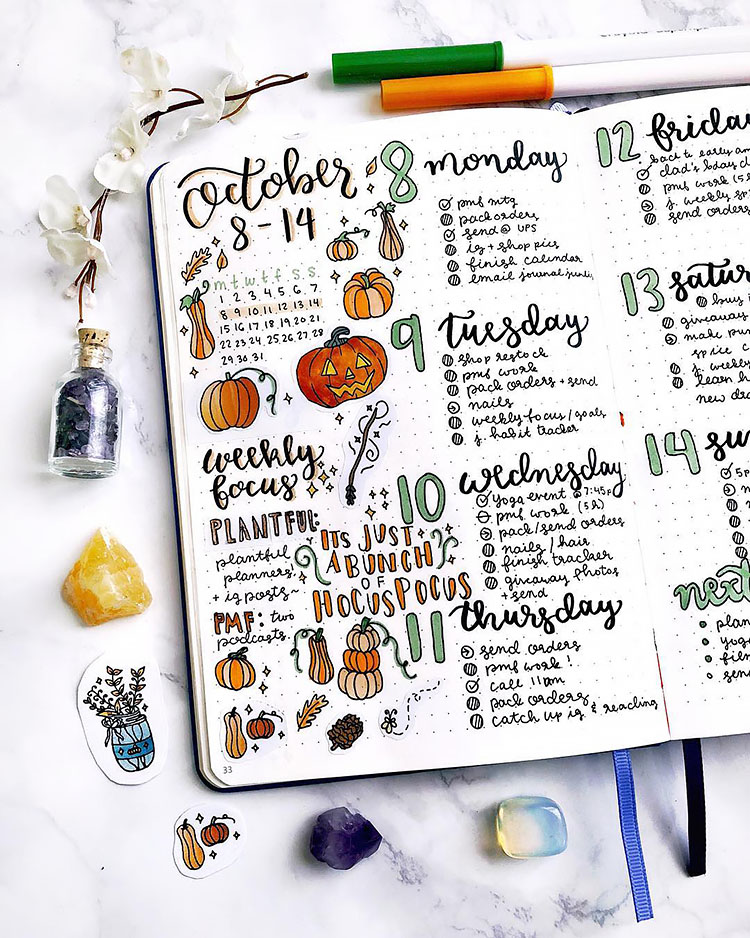 October
8 - 14
m. t. w. t. f. s. s.
1 2. 3. 4. 5. 6. 7.
8. 9. 10. 11. 12. 13. 14
15 16. 17. 18. 19. 20. 21.
22. 23. 24. 25. 26. 27. 28
29. 30. 31.
weekly
focus
PLANTFUL:
plantful
planners!
+ ig posts~
PMF: two
podcasts
ITS JUST
A BUNCH
OF
HOCUS POCUS
33
8 monday
pmf mtg
pack orders
send @ UPS
ig + shop pics
finish calendar
email journal
9 tuesday
shop restock
pmf work
pack orders + send
nails
weekly focus / goals
j. habit tracker
10 wednesday
yoga event @ 7:45p
pmf work (5h)
pack/send orders
nails / hair
finish tracker
giveaway photos
+ send
11 thursday
send orders
pmf work!
call 11am
pack orders
catch up ig & reading
12 friday
back to early am
dad's bday
pmf work (5h
j. weekly
send orders
13 satur
buy
giveaway
make
spice c
j. weekly
learn h
new
14 su
5p
next
plan
yoga
film
send